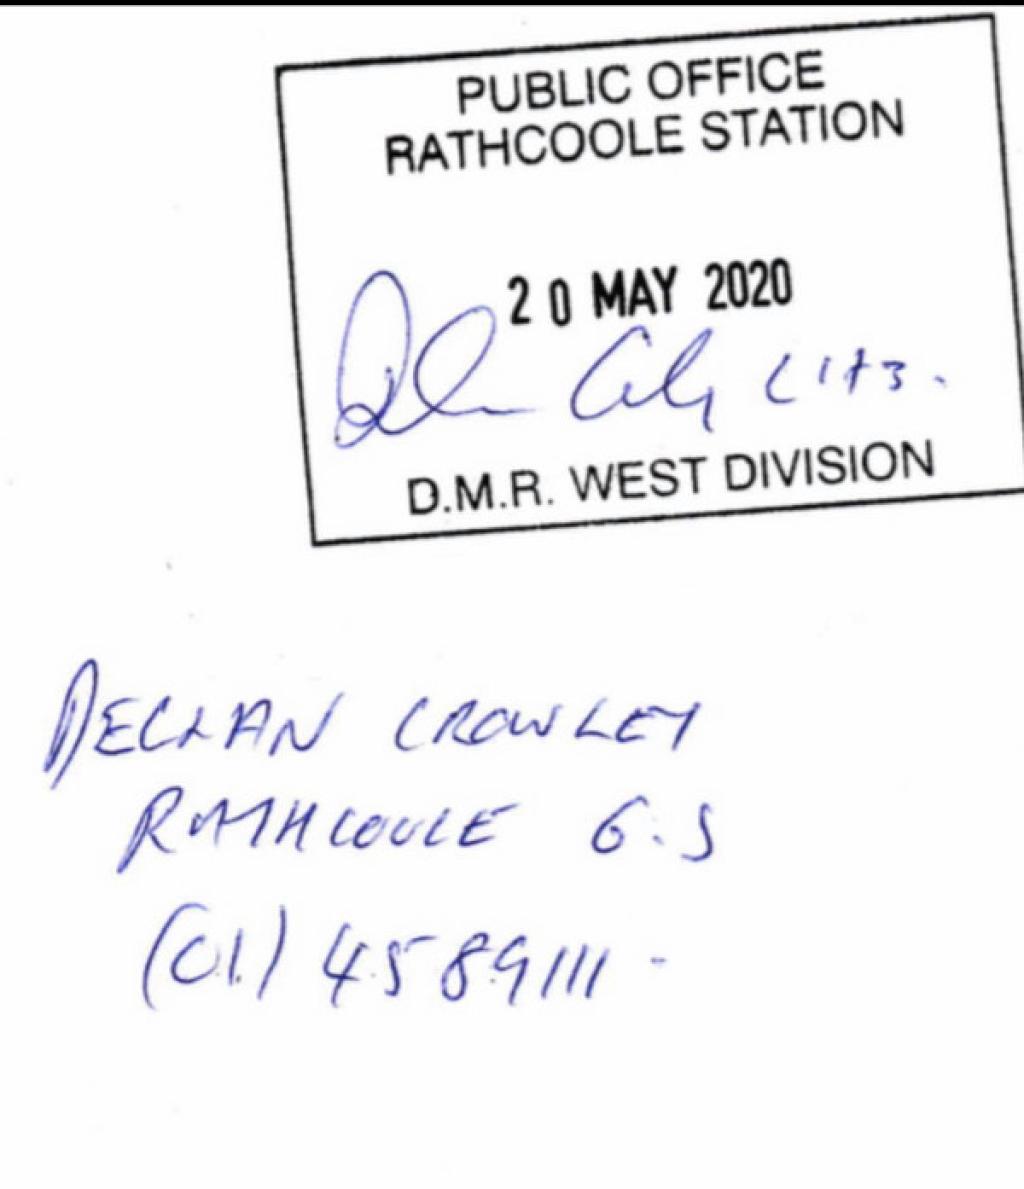 PUBLIC OFFICE
RATHCOOLE STATION
20 MAY 2020
D.M.R. WEST DIVISION
DECLAN CROWLEY
RATHCOOLE G.S
(01) 4589111